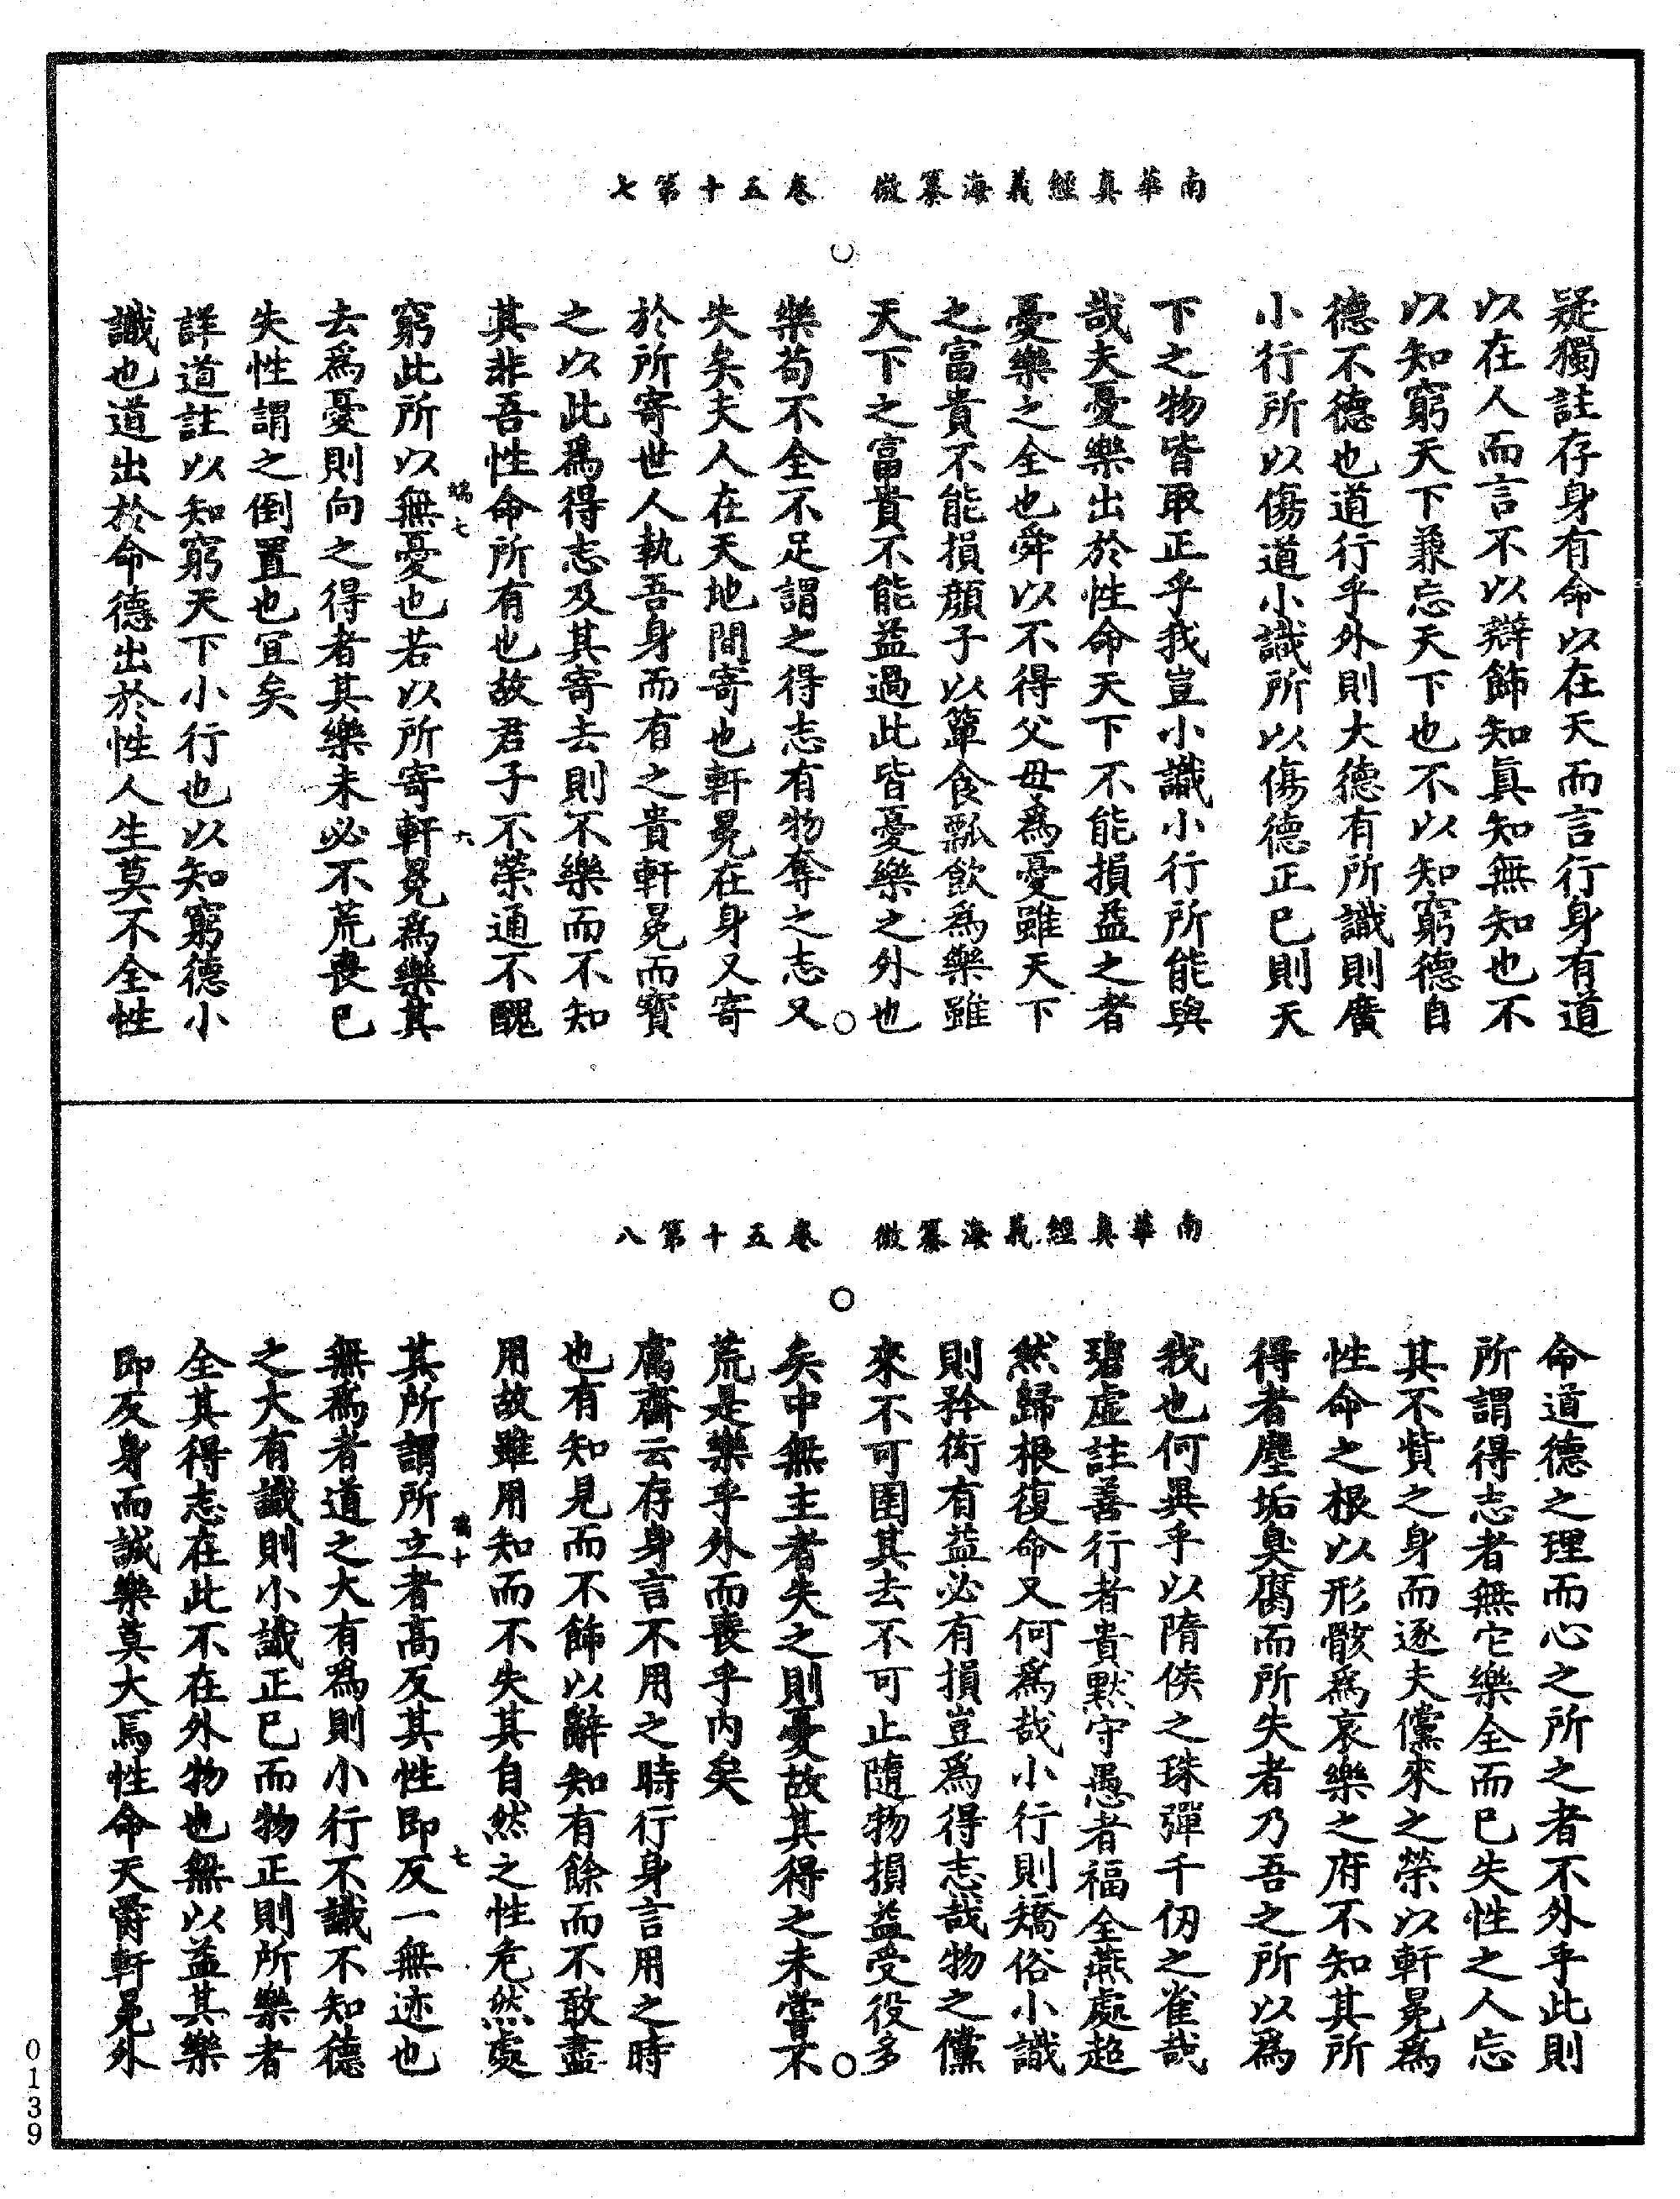 南華真經義海纂微　卷五十第七
疑獨註存身有命以在天而言行身有道
以在人而言不以辯飾知真知無知也不
以知窮天下兼忘天下也不以知窮德自
德不德也道行乎外則大德有所識則廣
小行所以傷道小識所以傷德正已則天
下之物皆取正乎我豈小識小行所能與
哉夫憂樂出於性命天下不能損益之者
憂樂之全也舜以不得父母為憂雖天下
之富貴不能損顏子以簞食瓢飲為樂雖
天下之富貴不能益過此皆憂樂之外也
樂苟不全不足謂之得志有物奪之志又
失矣夫人在天地間寄也軒冕在身又寄
於所寄世人執吾身而有之貴軒冕而寶
之以此為得志及其寄去則不樂而不知
其非吾性命所有也故君子不榮通不醜
窮此所以無憂也若以所寄軒冕為樂其
去為憂則向之得者其樂未必不荒喪已
失性謂之倒置也宜矣
詳道註以知窮天下小行也以知窮德小
識也道出於命德出於性人生莫不全性
瑞七
六
南華真經義海纂微　卷五十第八
命道德之理而心之所之者不外乎此則
所謂得志者無它樂全而已失性之人忘
其不貲之身而逐夫儻來之榮以軒冕為
性命之根以形骸為哀樂之府不知其所
得者塵垢臭腐而所失者乃吾之所以為
我也何異乎以隋侯之珠彈千仞之雀哉
碧虛註善行者貴默守愚者福全燕處超
然歸根復命又何為哉小行則矯俗小識
則矜衒有益必有損豈為得志哉物之儻
來不可圉其去不可止隨物損益受役多
矣中無主者失之則憂故其得之未嘗不
荒是樂乎外而喪乎內矣
鬳齋云存身言不用之時行身言用之時
也有知見而不飾以辭知有餘而不敢盡
用故雖用知而不失其自然之性危然處
其所謂所立者高反其性即反一無迹也
無為者道之大有為則小行不識不知德
之大有識則小識正已而物正則所樂者
全其得志在此不在外物也無以益其樂
即反身而誠樂莫大焉性命天爵軒冕外
瑞十
七
0139